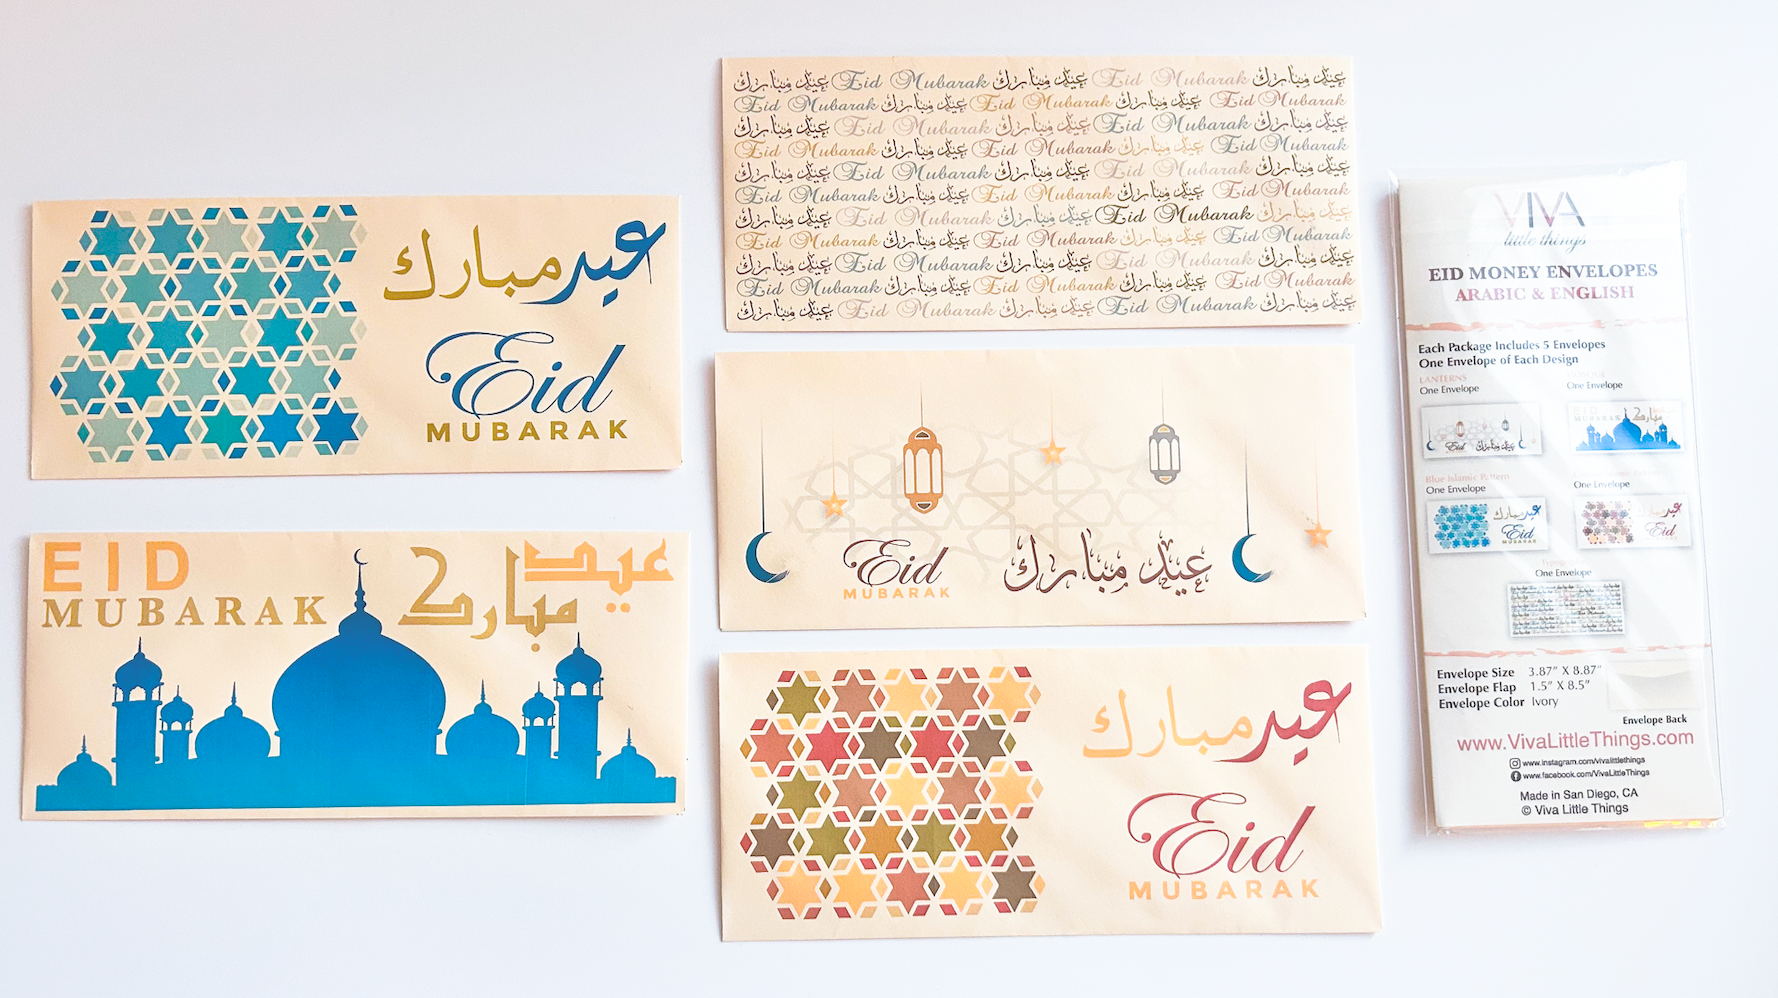 عيد مبارك
Eid
MUBARAK
EID
MUBARAK
عيد
مبارك
عيد مبارك Eid Mubarak عيد مبارك Eid Mubarak عيد مبارك
Eid Mubarak عيد مبارك Eid Mubarak عيد مبارك Eid Mubarak
عيد مبارك Eid Mubarak عيد مبارك Eid Mubarak عيد مبارك
Eid Mubarak عيد مبارك Eid Mubarak عيد مبارك Eid Mubarak
عيد مبارك Eid Mubarak عيد مبارك Eid Mubarak عيد مبارك
Eid Mubarak عيد مبارك Eid Mubarak عيد مبارك Eid Mubarak
عيد مبارك Eid Mubarak عيد مبارك Eid Mubarak عيد مبارك
Eid Mubarak عيد مبارك Eid Mubarak عيد مبارك Eid Mubarak
عيد مبارك Eid Mubarak عيد مبارك Eid Mubarak عيد مبارك
Eid Mubarak عيد مبارك Eid Mubarak عيد مبارك Eid Mubarak
عيد مبارك Eid Mubarak عيد مبارك Eid Mubarak عيد مبارك
Eid
MUBARAK
عيد مبارك
عيد مبارك
Eid
MUBARAK
VIVA
little things
EID MONEY ENVELOPES
ARABIC & ENGLISH
Each Package Includes 5 Envelopes
One Envelope of Each Design
LANTERNS
One Envelope
One Envelope
Blue Islamic Pattern
One Envelope
One Envelope
One Envelope
Envelope Size 3.87" X 8.87"
Envelope Flap 1.5" X 8.5"
Envelope Color Ivory
Envelope Back
www.VivaLittleThings.com
www.instagram.com/vivalittlethings
www.facebook.com/VivaLittleThings
Made in San Diego, CA
© Viva Little Things